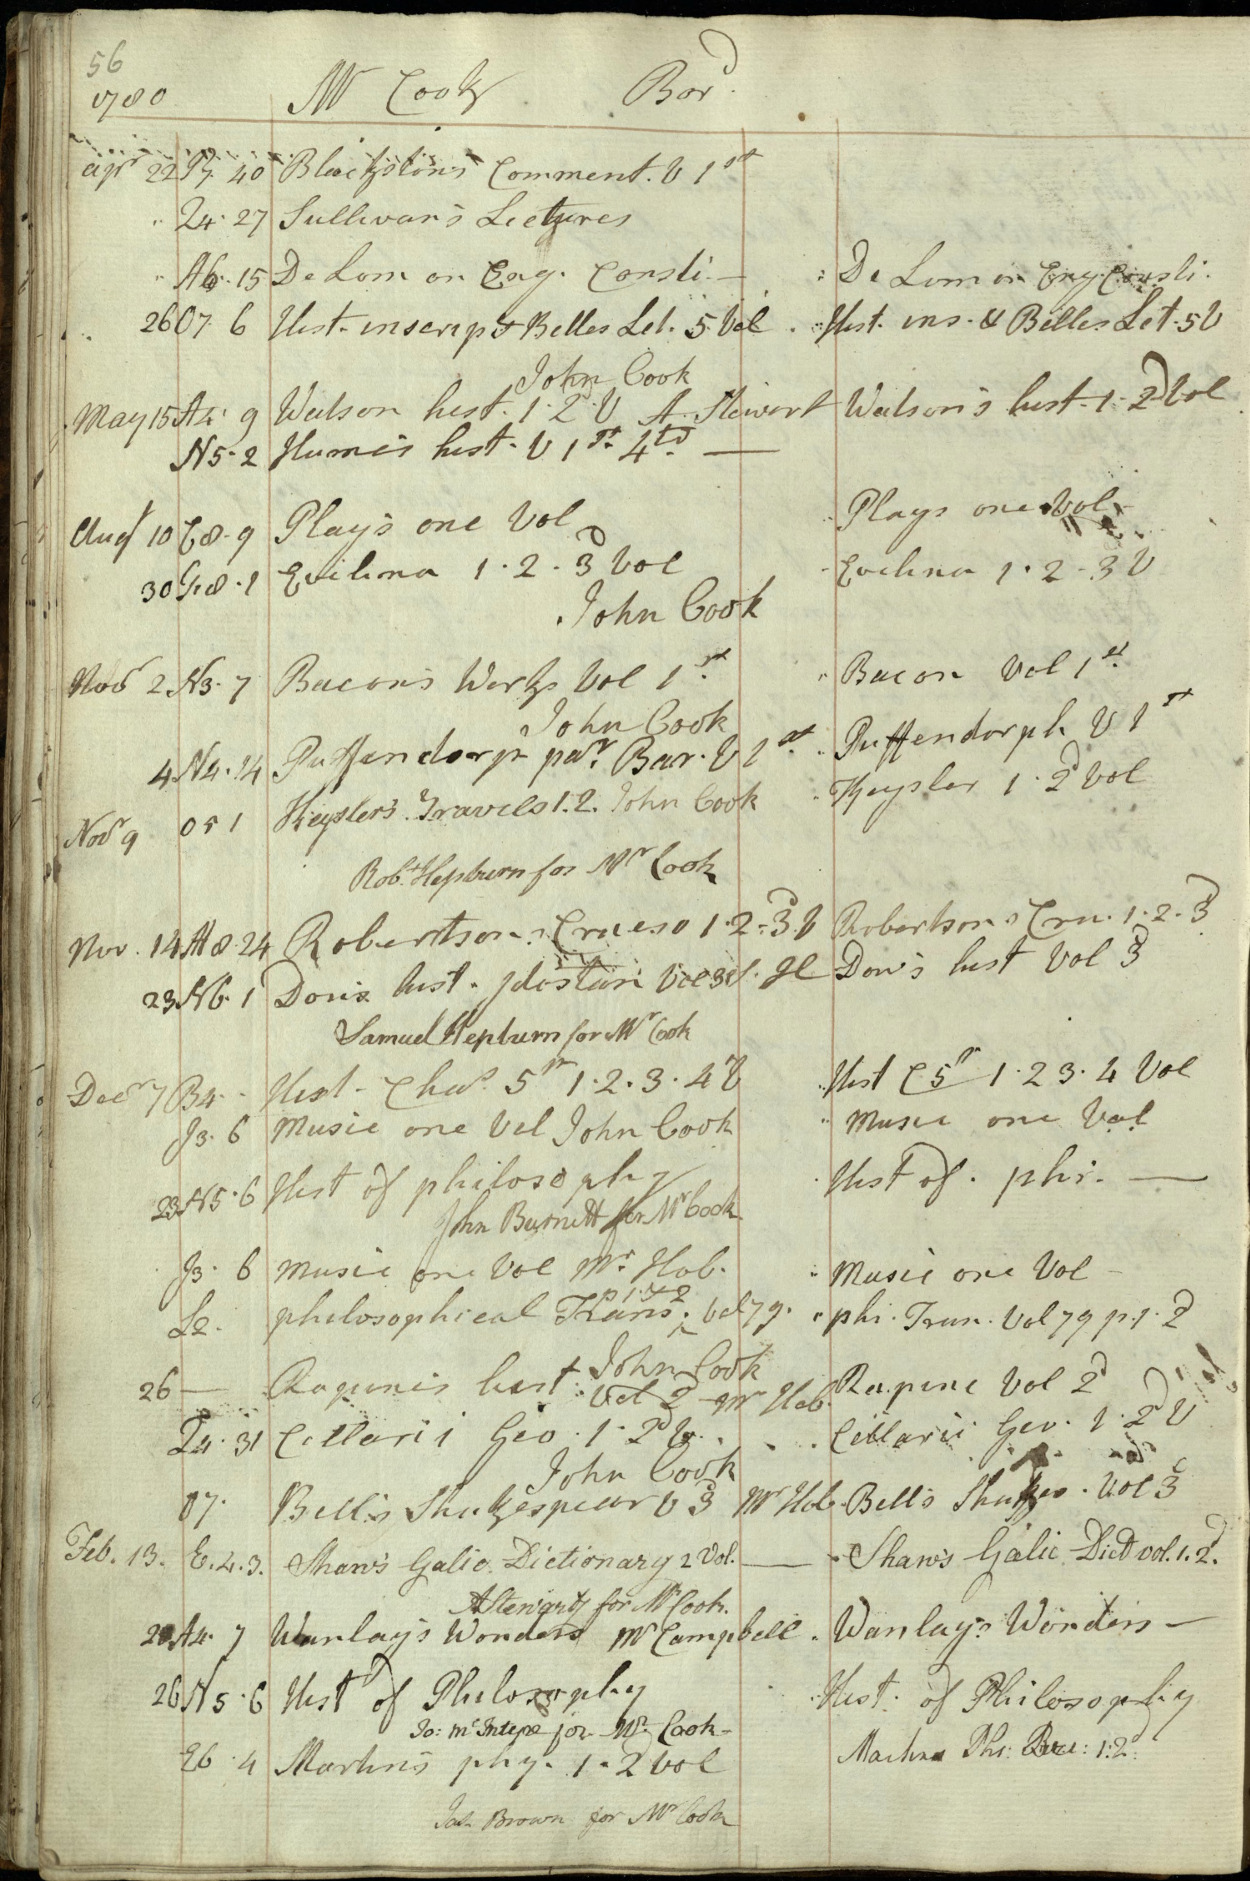 56
1780 Mr Cook Bord
apr 22 P7. 40 Blackston's Comment. V 1st
Z4. 27 Sullivan's Lectures
A6. 15 De Lom on Eng. Consti. — De Lom on Eng Consti.
26 O7. 6 Hist. inscrip & Belles Let. 5 Vol Hist. ins. & Belles Let. 5 V
John Cook
May 15 A4. 9 Watson hist. 1. 2 V A. Stewart Watson's hist. 1. 2d Vol
N5. 2 Hume's hist. V 1st. 4to. —
Augt 10 C8. 9 Play's one Vol Plays one Vol
30 G8. 1 Evilina 1. 2. 3d Vol Evelina 1. 2. 3 V
John Cook
Novr 2 N3. 7 Bacon's Works Vol 1st Bacon Vol 1st
John Cook
4 N4. 14 Puffendorp par Bar. V 1st Puffendorph V 1st
Novr 9 O5 1 Keysler's Travels 1. 2. John Cook Keysler 1. 2d Vol
Robt Hepburn for Mr Cook
Nov. 14 M8. 24 Robertson Crueso 1. 2. 3d. V Robertson Cru. 1. 2. 3d
23 N6. 1 Dow's hist. Idostan Vol 3d Dow's hist Vol 3d
Samuel Hepburn for Mr Cook
Decr 7 B4. Hist. Chas. 5th 1. 2. 3. 4 V Hist C 5th 1. 2 3. 4 Vol
J3. 6 Music one Vol John Cook Music one Vol
23 N5. 6 Hist of philosophy Hist of. phi. —
John Burnett for Mr Cook
J3. 6 Music one Vol Mr. Hob. Music one Vol
p 1. & 2
L2. philosophical Trans. Vol 79. phi. Tran. Vol 79 p. 1. 2
John Cook
26 — Rapine's hist. Vol 2d Mr Hob. Rapine Vol 2d
Z4. 31 Cellarii Geo. 1. 2d V. Cellarii Geo. 1. 2d V
John Cook
O7. Bell's Shakespear V 3d Mr Hob. Bell's Shakes. Vol 3d
Feb. 13. E. 4. 3. Shaw's Galic Dictionary 2 Vol. — Shaw's Galic Dict vol. 1. 2d.
A Stewart for Mr Cook.
20 A4. 7 Wanlay's Wonders Mr Campbell. Wanlay's Wonders —
26 N5. 6 Hist of Philosophy Hist. of Philosophy
Jo: for Mr Cook —
E6. 4 Martin's phy. 1. 2 Vol Martin Phi: 1: 2:
Jas. Brown for Mr Cook